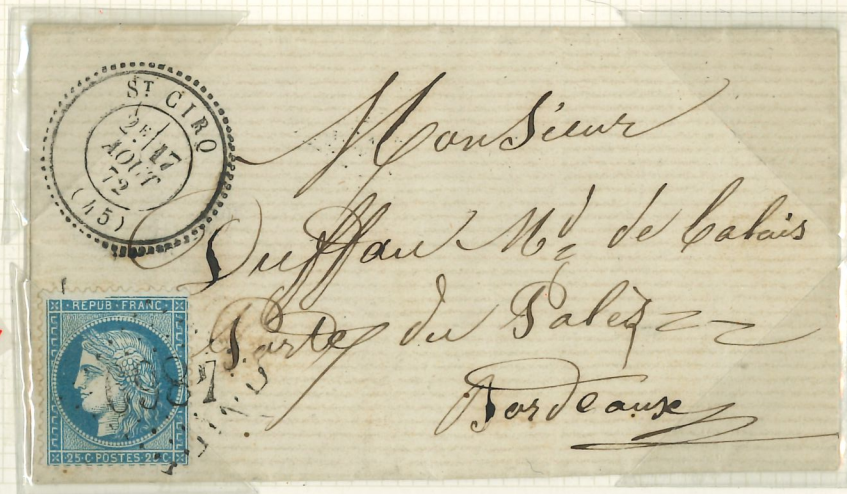 ST CIRQ
2E 17
AOUT
72
(45)
Monsieur
Duffau Md de Balais
Porte du Palais
Bordeaux
REPUB·FRANC·
25·C·POSTES·25·C